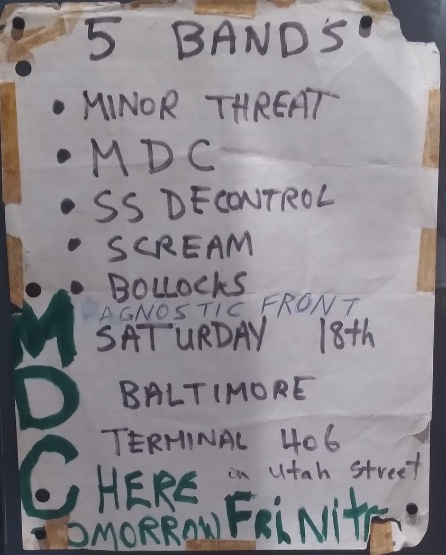 5 BANDS
• MINOR THREAT
• MDC
• SS DECONTROL
• SCREAM
• BOLLOCKS
AGNOSTIC FRONT
SATURDAY 18th
BALTIMORE
TERMINAL 406
on Utah Street
MDC
HERE
TOMORROW FRI. NITE